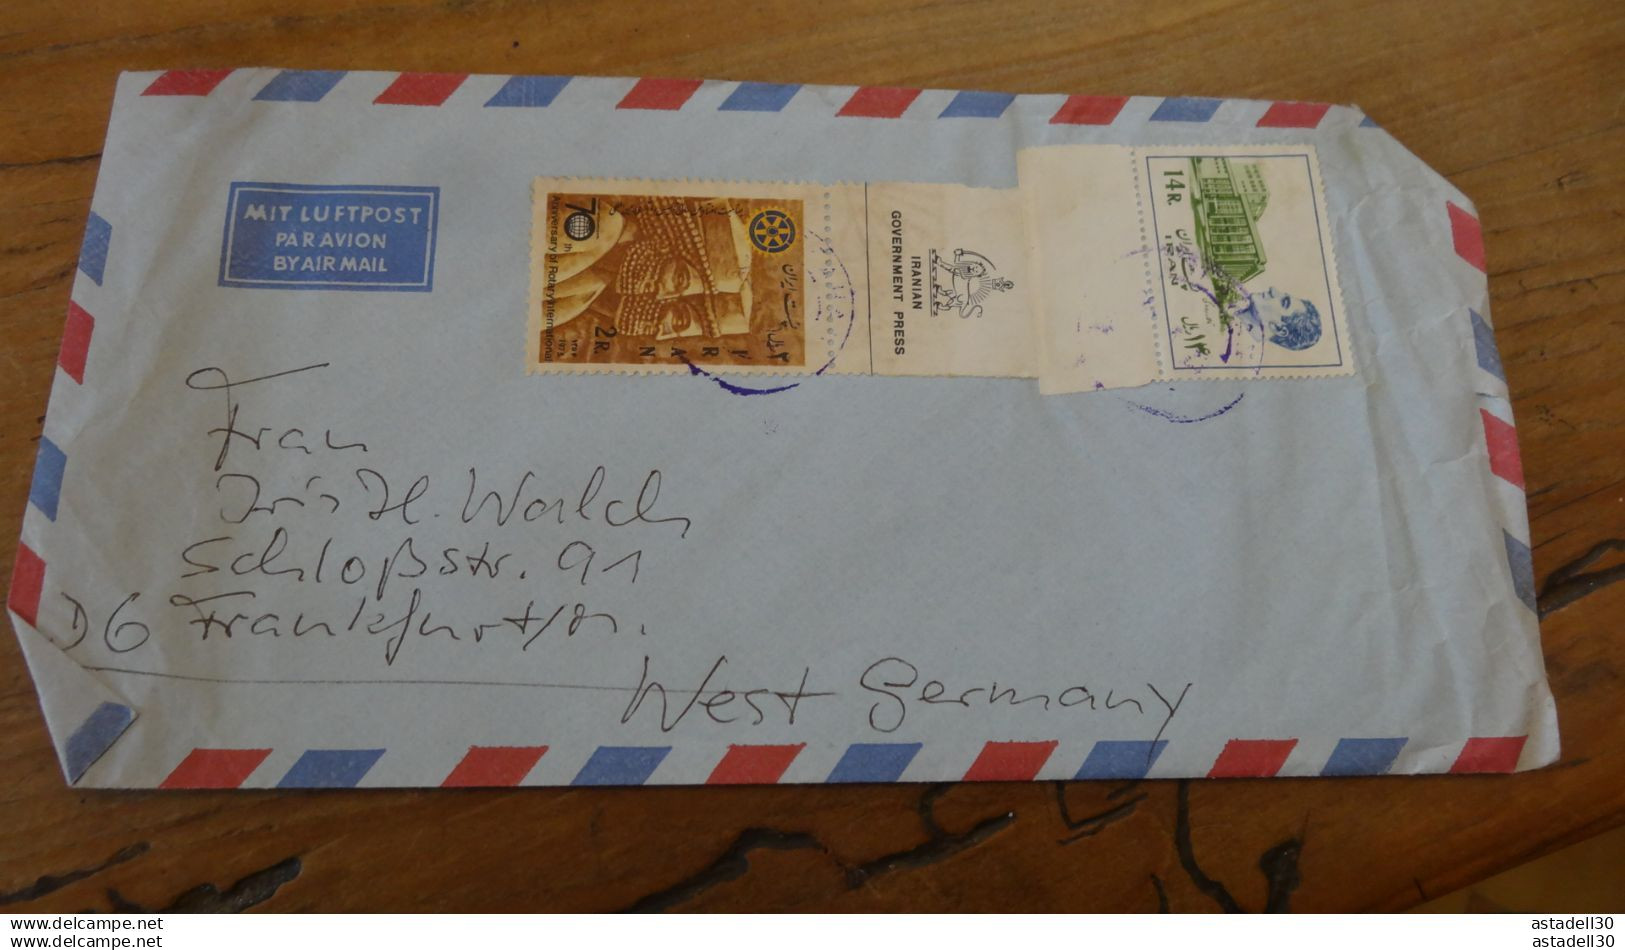 MIT LUFTPOST
PAR AVION
BY AIR MAIL
70th
Anniversary of Rotary International
1975
2R.
IRAN
IRANIAN
GOVERNMENT PRESS
14R.
IRAN
Frau
H. Walch
Schloßstr. 91
D6 Frankfurt/M.
West Germany
astadell30
astadell30
astadell30
astadell30